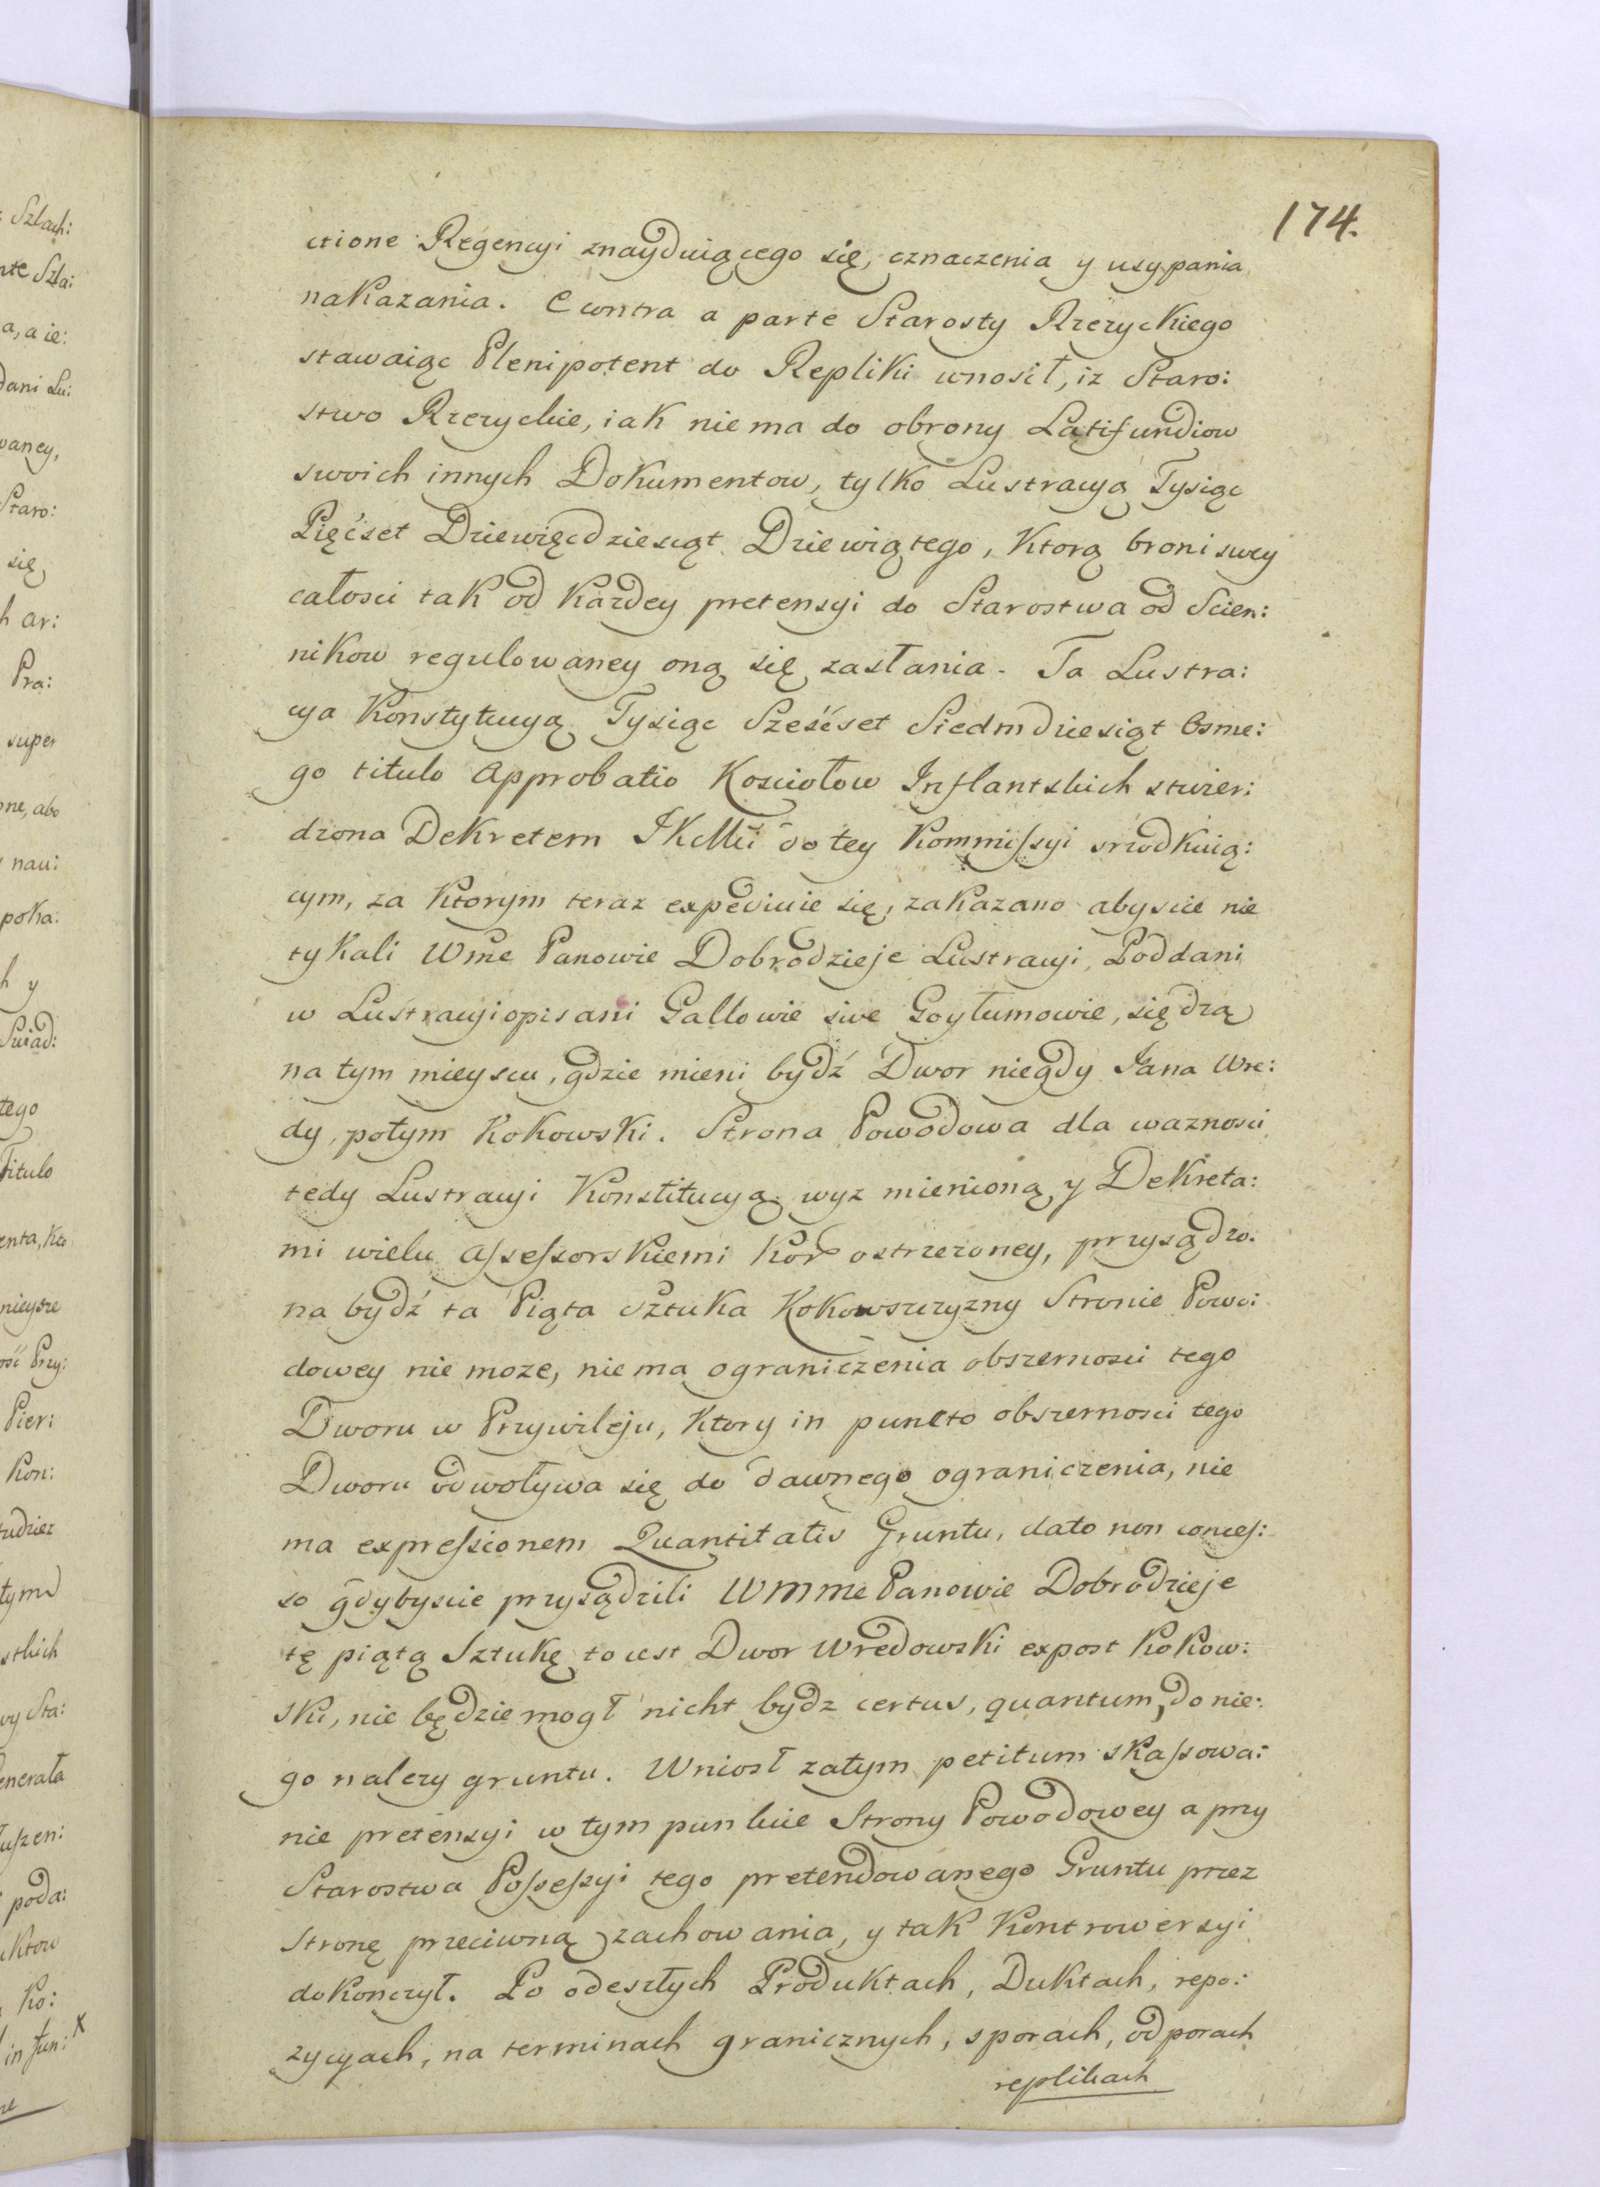 174.
ctione Regencyi znayduiącego się, oznaczenia y usypania
nakazania. E contra a parte Starosty Rzezyckiego
stawaiąc Plenipotent do Repliki wnosił, iz Staro:
stwo Rzezyckie, iak nie ma do obrony Latifundiow
swoich innych Dokumentow, tylko Lustracyą Tysiąc
Pięćset Dziewięcdziesiąt Dziewiątego, Ktorą broni swey
całosci tak od Kazdey pretensyi do Starostwa od Scien:
nikow regulowaney oną się zasłania. Ta Lustra:
cya Konstytucyą Tysiąc Sześćset Siedmdziesiąt Osme:
go titulo Approbatio Kosciołow Inflantskich stwier:
dzona Dekretem JKMci do tey Kommissyi srzodkuią:
cym, za Ktorym teraz expediuie się, zakazano abyscie nie
tykali Wme Panowie Dobrodzieje Lustracyi, Poddani
w Lustracyi opisani Galtowie sive Goytumowie, siędzą
na tym mieyscu, gdzie mieni bydź Dwor niegdy Jana Wre:
dy, potym Kokowski. Strona Powodowa dla waznosci
tedy Lustracyi Konstitucyą wyz mienioną y Dekreta:
mi wielu Assessorskiemi Kor ostrzezoney, przysądzo:
na bydź ta Piąta Sztuka Kokowszczyzny Stronie Powo:
dowey nie moze, nie ma ograniczenia obszernosci tego
Dworu w Przywileju, Ktory in puncto obszernosci tego
Dworu odwoływa się do dawnego ograniczenia, nie
ma expressionem Quantitatis Gruntu, dato non conces:
so gdybyscie przysądzili WMMe Panowie Dobrodzieje
tę piątą Sztukę to iest Dwor Wredowski expost Kokow:
ski, nie będzie mogł nicht bydz certus, quantum do nie:
go nalezy gruntu. Wniosł zatym petitum skassowa:
nie pretensyi w tym punkcie Strony Powodowey a przy
Starostwa Possessyi tego pretendowanego Gruntu przez
Stronę przeciwną zachowania, y tak Kontrowersyi
dokonczył. Po odeszłych Produktach, Duktach, repo:
zycyach, na terminach granicznych, sporach, odporach
replikach